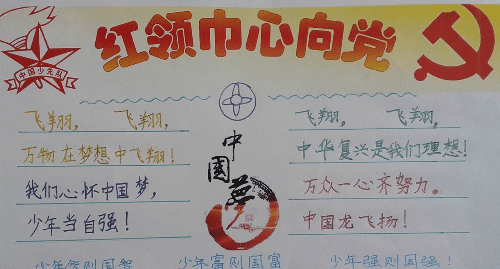 红领巾心向党
中国少先队
飞翔，飞翔，
万物在梦想中飞翔！
我们心怀中国梦，
少年当自强！
中国梦
飞翔，飞翔，
中华复兴是我们理想！
万众一心齐努力。
中国龙飞扬！
少年智则国智
少年富则国富
少年强则国强！